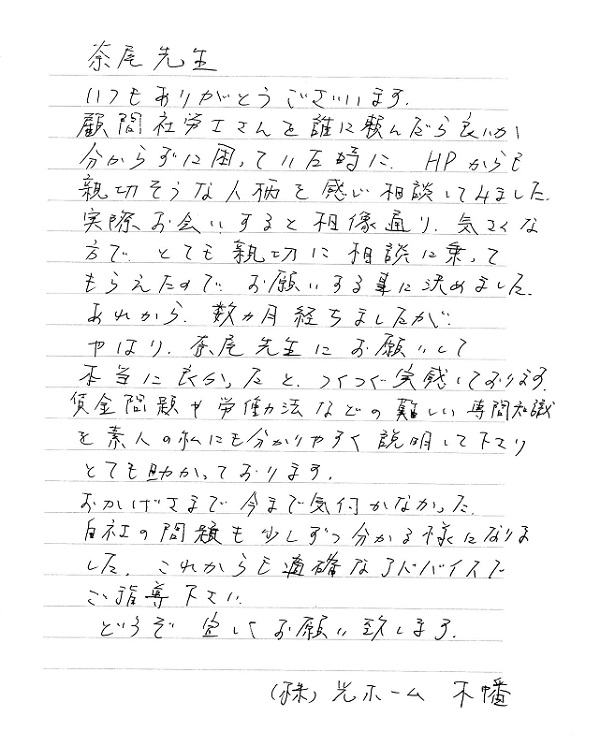 奈尾先生
いつもありがとうございます.
顧問社労士さんを誰に頼んだら良いか
分からずに困っていた時に、HPからも
親切そうな人柄を感じ相談してみました.
実際お会いすると想像通り、気さくな
方で、とても親切に相談に乗って
もらえたので、お願いする事に決めました.
あれから、数カ月経ちましたが、
やはり、奈尾先生にお願いして
本当に良かったと、つくづく実感しております.
賃金問題や労働法などの難しい専門知識
を素人の私にも分かりやすく説明して下さり
とても助かっております.
おかげさまで今まで気付かなかった.
自社の問題も少しずつ分かる様になりま
した. これからも適確なアドバイスで
ご指導下さい.
どうぞ宜しくお願い致します.
(株)光ホーム